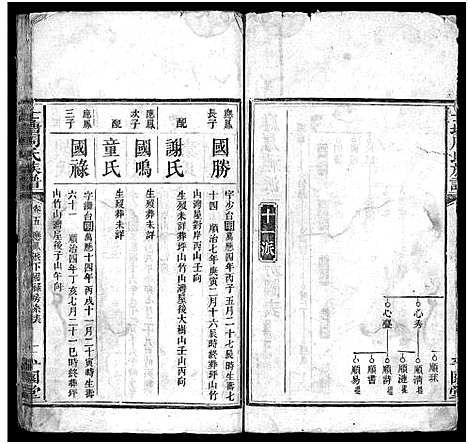 心秀
心臺
順球
順漣
順清
順詩
順書
順易
應鳳長子
國勝
字少台 明萬應四年丙子五月二十七長時生壽七
十四 順治七年庚寅二月十六寅時終葬坪
山灣屋對岸丙山壬向
配
謝氏
生歿葬坪山竹山灣屋後大樹山壬山丙向
應鳳次子
國鳴
生歿葬未詳
配
童氏
生歿葬未詳
應鳳三子
國祿
字濟台 明萬應十四年丙戌十一月二十寅時生壽
六十一 順治四年丁亥七月二十一巳時終葬坪
山竹山灣屋後子山午向
周氏族譜
卷五